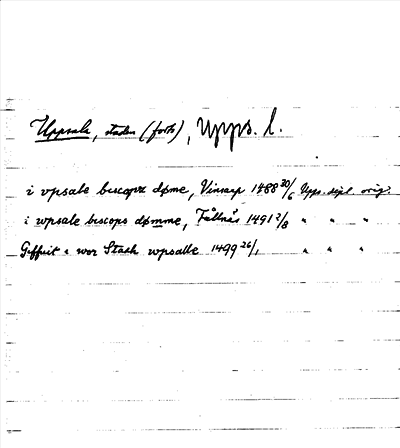 Uppsala, staden (forts), Upps. l.
i vpsale bescopx døme, Vinsarp 1488 30/6 Upps. dipl. orig.
i wpsale bescops dømme, Fållnäs 1491 2/8 " " "
Geffuit i wor Stadh wpsalle 1499 26/1 " " "